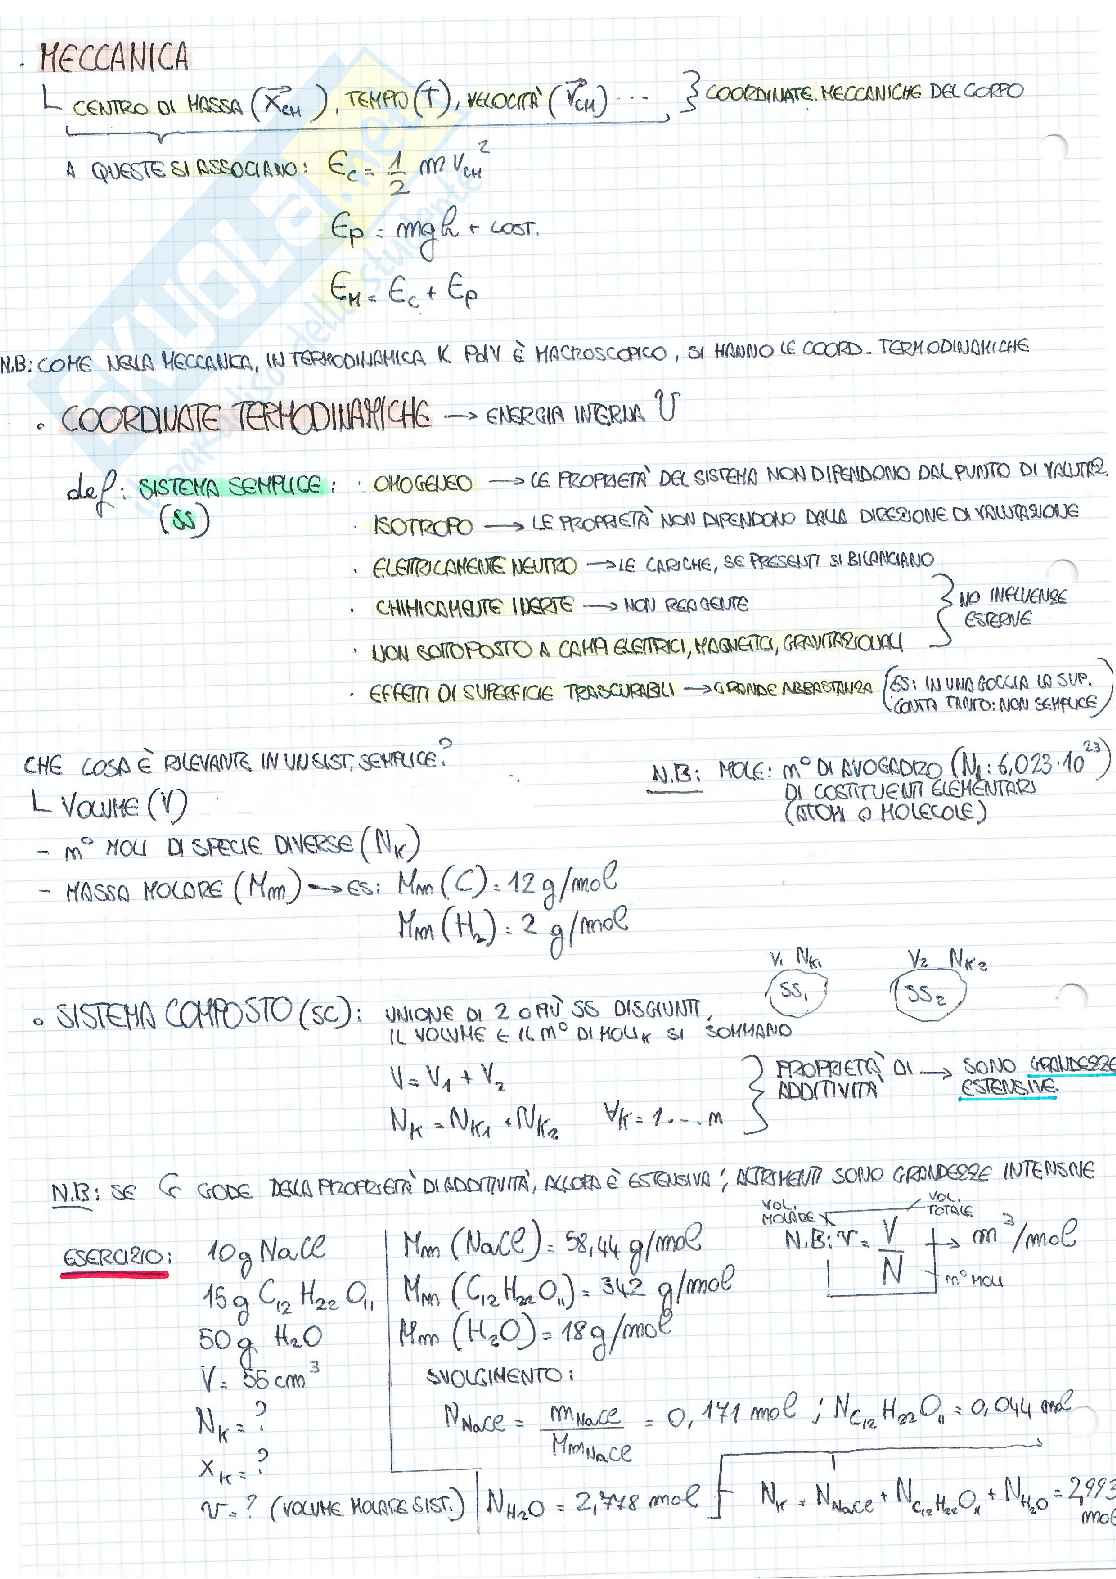 · MECCANICA
L CENTRO DI MASSA (X⃗CM), TEMPO (T), VELOCITÀ (V⃗CM) ··· } COORDINATE MECCANICHE DEL CORPO
A QUESTE SI ASSOCIANO: Ec = 1/2 m VCM²
Ep = mgh + COST.
EM = Ec + Ep
N.B: COME NELLA MECCANICA, IN TERMODINAMICA IL PdV È MACROSCOPICO, SI HANNO LE COORD. TERMODINAMICHE
· COORDINATE TERMODINAMICHE → ENERGIA INTERNA U
def: SISTEMA SEMPLICE: · OMOGENEO → LE PROPRIETÀ DEL SISTEMA NON DIPENDONO DAL PUNTO DI VALUTAZ.
(SS)
· ISOTROPO → LE PROPRIETÀ NON DIPENDONO DALLA DIREZIONE DI VALUTAZIONE
· ELETTRICAMENTE NEUTRO → LE CARICHE, SE PRESENTI SI BILANCIANO
· CHIMICAMENTE INERTE → NON REAGENTE
} NO INFLUENZE ESTERNE
· NON SOTTOPOSTO A CAMPI ELETTRICI, MAGNETICI, GRAVITAZIONALI
· EFFETTI DI SUPERFICIE TRASCURABILI → GRANDE ABBASTANZA (ES: IN UNA GOCCIA LA SUP. CONTA TANTO: NON SEMPLICE)
CHE COSA È RILEVANTE IN UN SIST. SEMPLICE?
L VOLUME (V)
- n° MOLI DI SPECIE DIVERSE (NK)
- MASSA MOLARE (Mm) → ES: Mm (C) = 12 g/mol
Mm (H₂) = 2 g/mol
N.B: MOLE: n° DI AVOGADRO (NA: 6,023·10²³)
DI COSTITUENTI ELEMENTARI
(ATOMI O MOLECOLE)
V₁ NK₁ V₂ NK₂
SS₁ SS₂
· SISTEMA COMPOSTO (SC): UNIONE DI 2 O PIÙ SS DISGIUNTI,
IL VOLUME E IL n° DI MOLI K SI SOMMANO
V = V₁ + V₂
NK = NK₁ + NK₂ ∀K = 1 ... n
} PROPRIETÀ DI → SONO GRANDEZZE
ADDITIVITÀ ESTENSIVE.
N.B: SE G GODE DELLA PROPRIETÀ DI ADDITIVITÀ, ALLORA È ESTENSIVA; ALTRIMENTI SONO GRANDEZZE INTENSIVE
VOL. MOLARE VOL. TOTALE
N.B: v = V/N → m³/mol
n° MOLI
ESERCIZIO: 10g NaCl
15g C₁₂H₂₂O₁₁
50g H₂O
V = 55 cm³
NK = ?
XK = ?
v = ? (VOLUME MOLARE SIST.)
Mm (NaCl) = 58,44 g/mol
Mm (C₁₂H₂₂O₁₁) = 342 g/mol
Mm (H₂O) = 18 g/mol
SVOLGIMENTO:
NNaCl = mNaCl / MmNaCl = 0,171 mol ; NC₁₂H₂₂O₁₁ = 0,044 mol
NH₂O = 2,778 mol
NK = NNaCl + NC₁₂H₂₂O₁₁ + NH₂O = 2,993 mol
SKUOLA.net